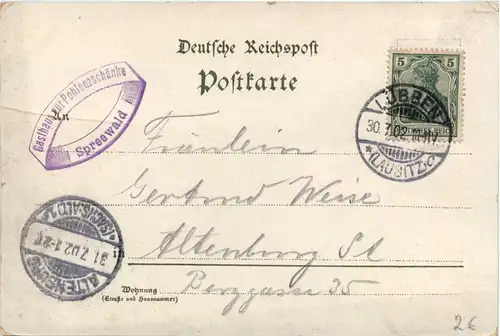 Deutsche Reichspost
Postkarte
Gasthaus zur Pohlenzschänke
Spreewald
An
5
5
LÜBBEN
30.7.02.
*(LAUSITZ)c
Fräulein
Gertrud Weise
in Altenburg Sl
Berggasse 35
ALTENBURG
31.7.02.1-2N
*(SACHS-ALT)
Wohnung
(Straße und Hausnummer)
2€